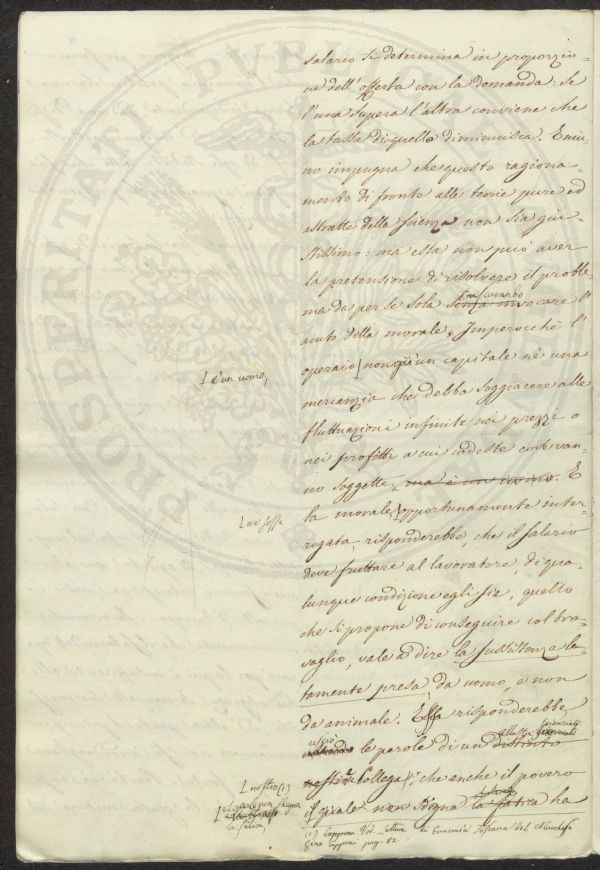 salario si determina in proporzio-
ne dell'offerta con la domanda: Se
l'una supera l'altra conviene che
la tassa di quello diminuisca. E niu-
no impugna che questo ragiona-
mento di fronte alle teorie pure ed
astratte della scienza non sia giu-
stissimo: ma essa non può aver
la pretensione di risolvere il proble-
trascurando
ma da per se sola senza invocare l'
aiuto della morale. Imperocchè l'
operaio non già un capitale nè una
è un uomo,
mercanzia che debba soggiacere alle
fluttuazioni infinite nei prezzi o
nei profitti a cui codeste cose van-
no soggette, ma è un uomo. E
la morale, opportunamente inter-
ove fosse
rogata, risponderebbe, che il salario
deve fruttare al lavoratore, di qua-
lunque condizione egli sia, quello
che si propone di conseguire col tra-
vaglio, vale a dire la sussistenza le-
tamente presa, da uomo, e non
da animale. Essa risponderebbe
illustre
le parole di un distinto
nostro Collega, che anche il povero
nostro (1)
il quale non sogna la satira ha
(1) Capponi Ved. Letture di Economia Toscana del Marchese
Gino Capponi pag. 82.